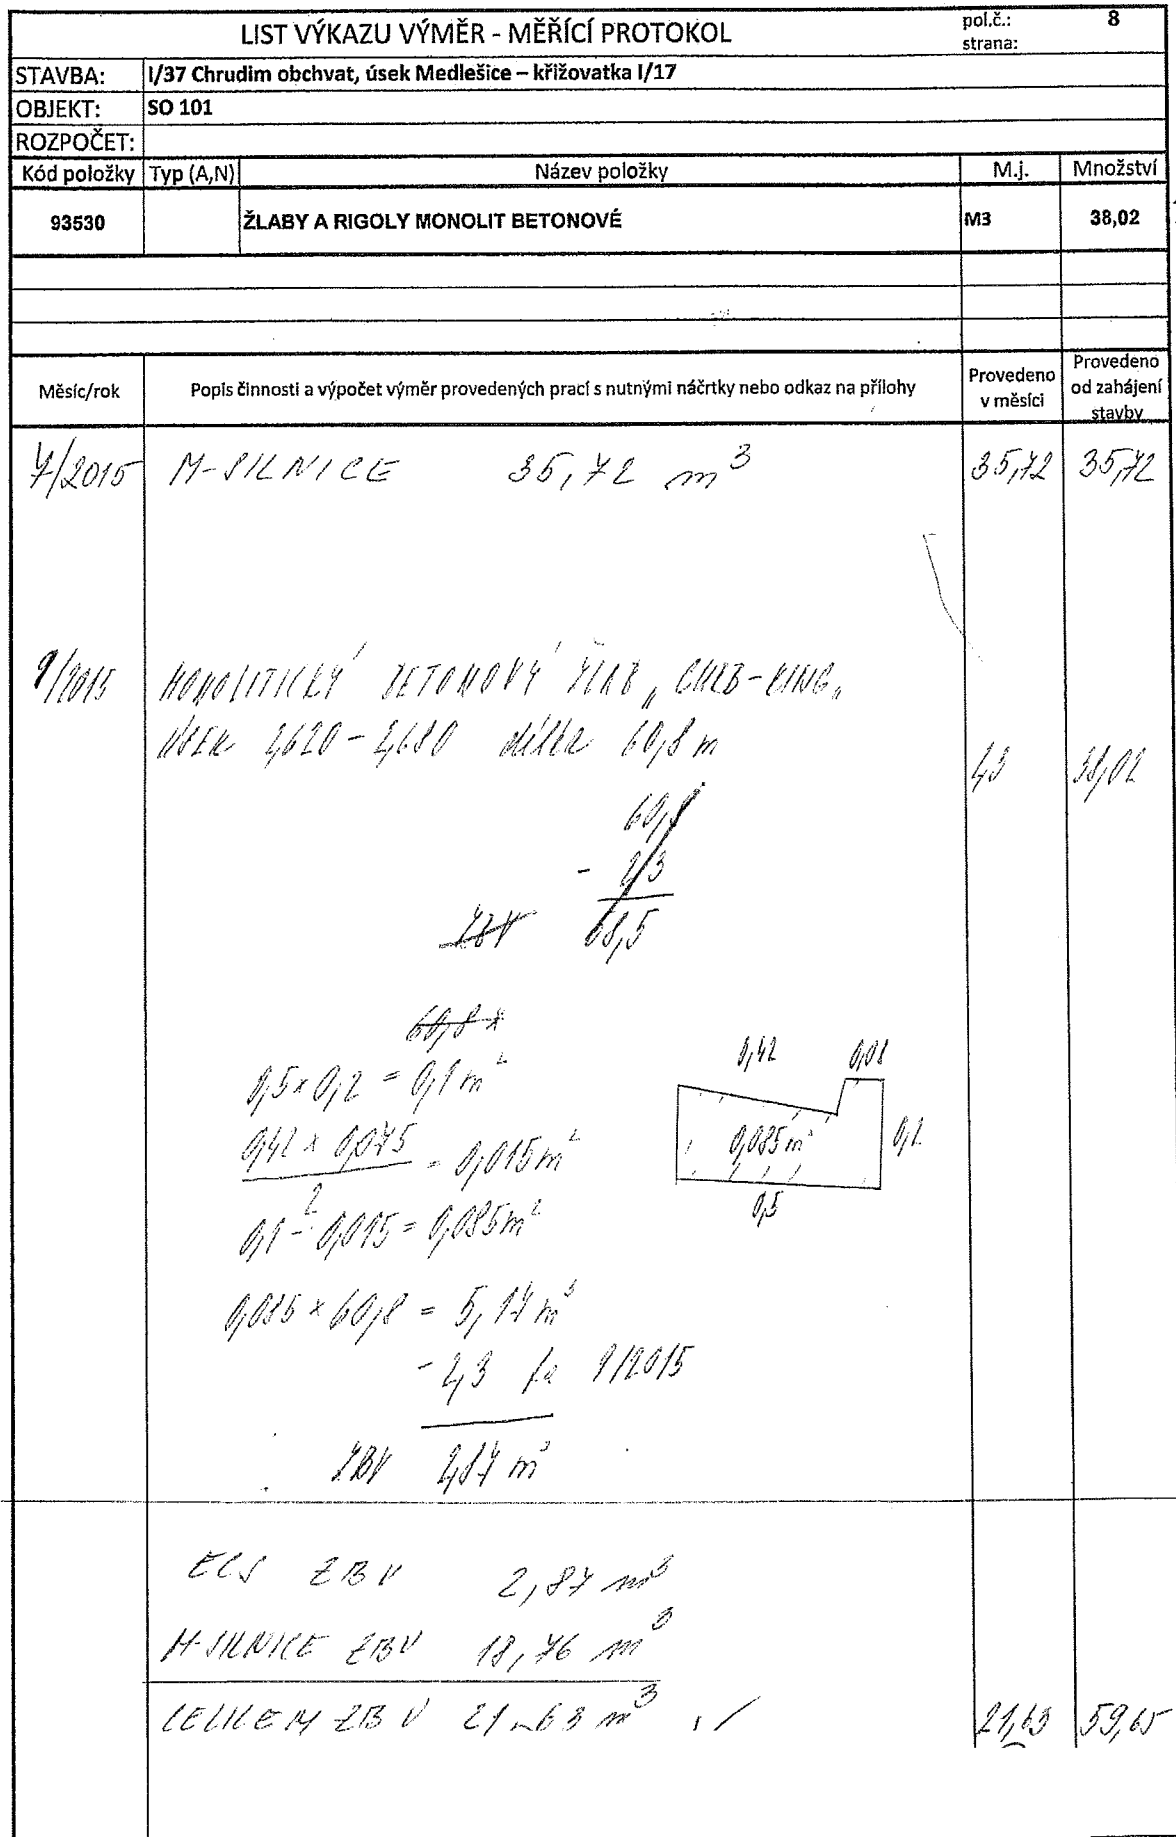 LIST VÝKAZU VÝMĚR - MĚŘÍCÍ PROTOKOL
pol.č.: 8
strana:
STAVBA: I/37 Chrudim obchvat, úsek Medlešice – křižovatka I/17
OBJEKT: SO 101
ROZPOČET:
Kód položky Typ (A,N) Název položky M.j. Množství
93530 ŽLABY A RIGOLY MONOLIT BETONOVÉ M3 38,02
Měsíc/rok Popis činnosti a výpočet výměr provedených prací s nutnými náčrtky nebo odkaz na přílohy Provedeno v měsíci Provedeno od zahájení stavby
7/2015 M-SILNICE 35,72 m³ 35,72 35,72
9/2015 MONOLITICKÝ BETONOVÝ ŽLAB „CURB-KING„
ÚSEK 2,620-2,680 délka 60,8 m
2,3 38,02
60,8
- 2,3
ZBV 58,5
60,8 x
0,5 x 0,2 = 0,1 m²
0,42 x 0,075 / 2 = 0,015 m²
0,1 - 0,015 = 0,085 m²
0,42 0,08
0,085 m² 0,2
0,5
0,085 x 60,8 = 5,17 m³
- 2,3 fa 9/2015
ZBV 2,87 m³
ECS ZBV 2,87 m³
M-SILNICE ZBV 18,76 m³
CELKEM ZBV 21,63 m³ 21,63 59,65